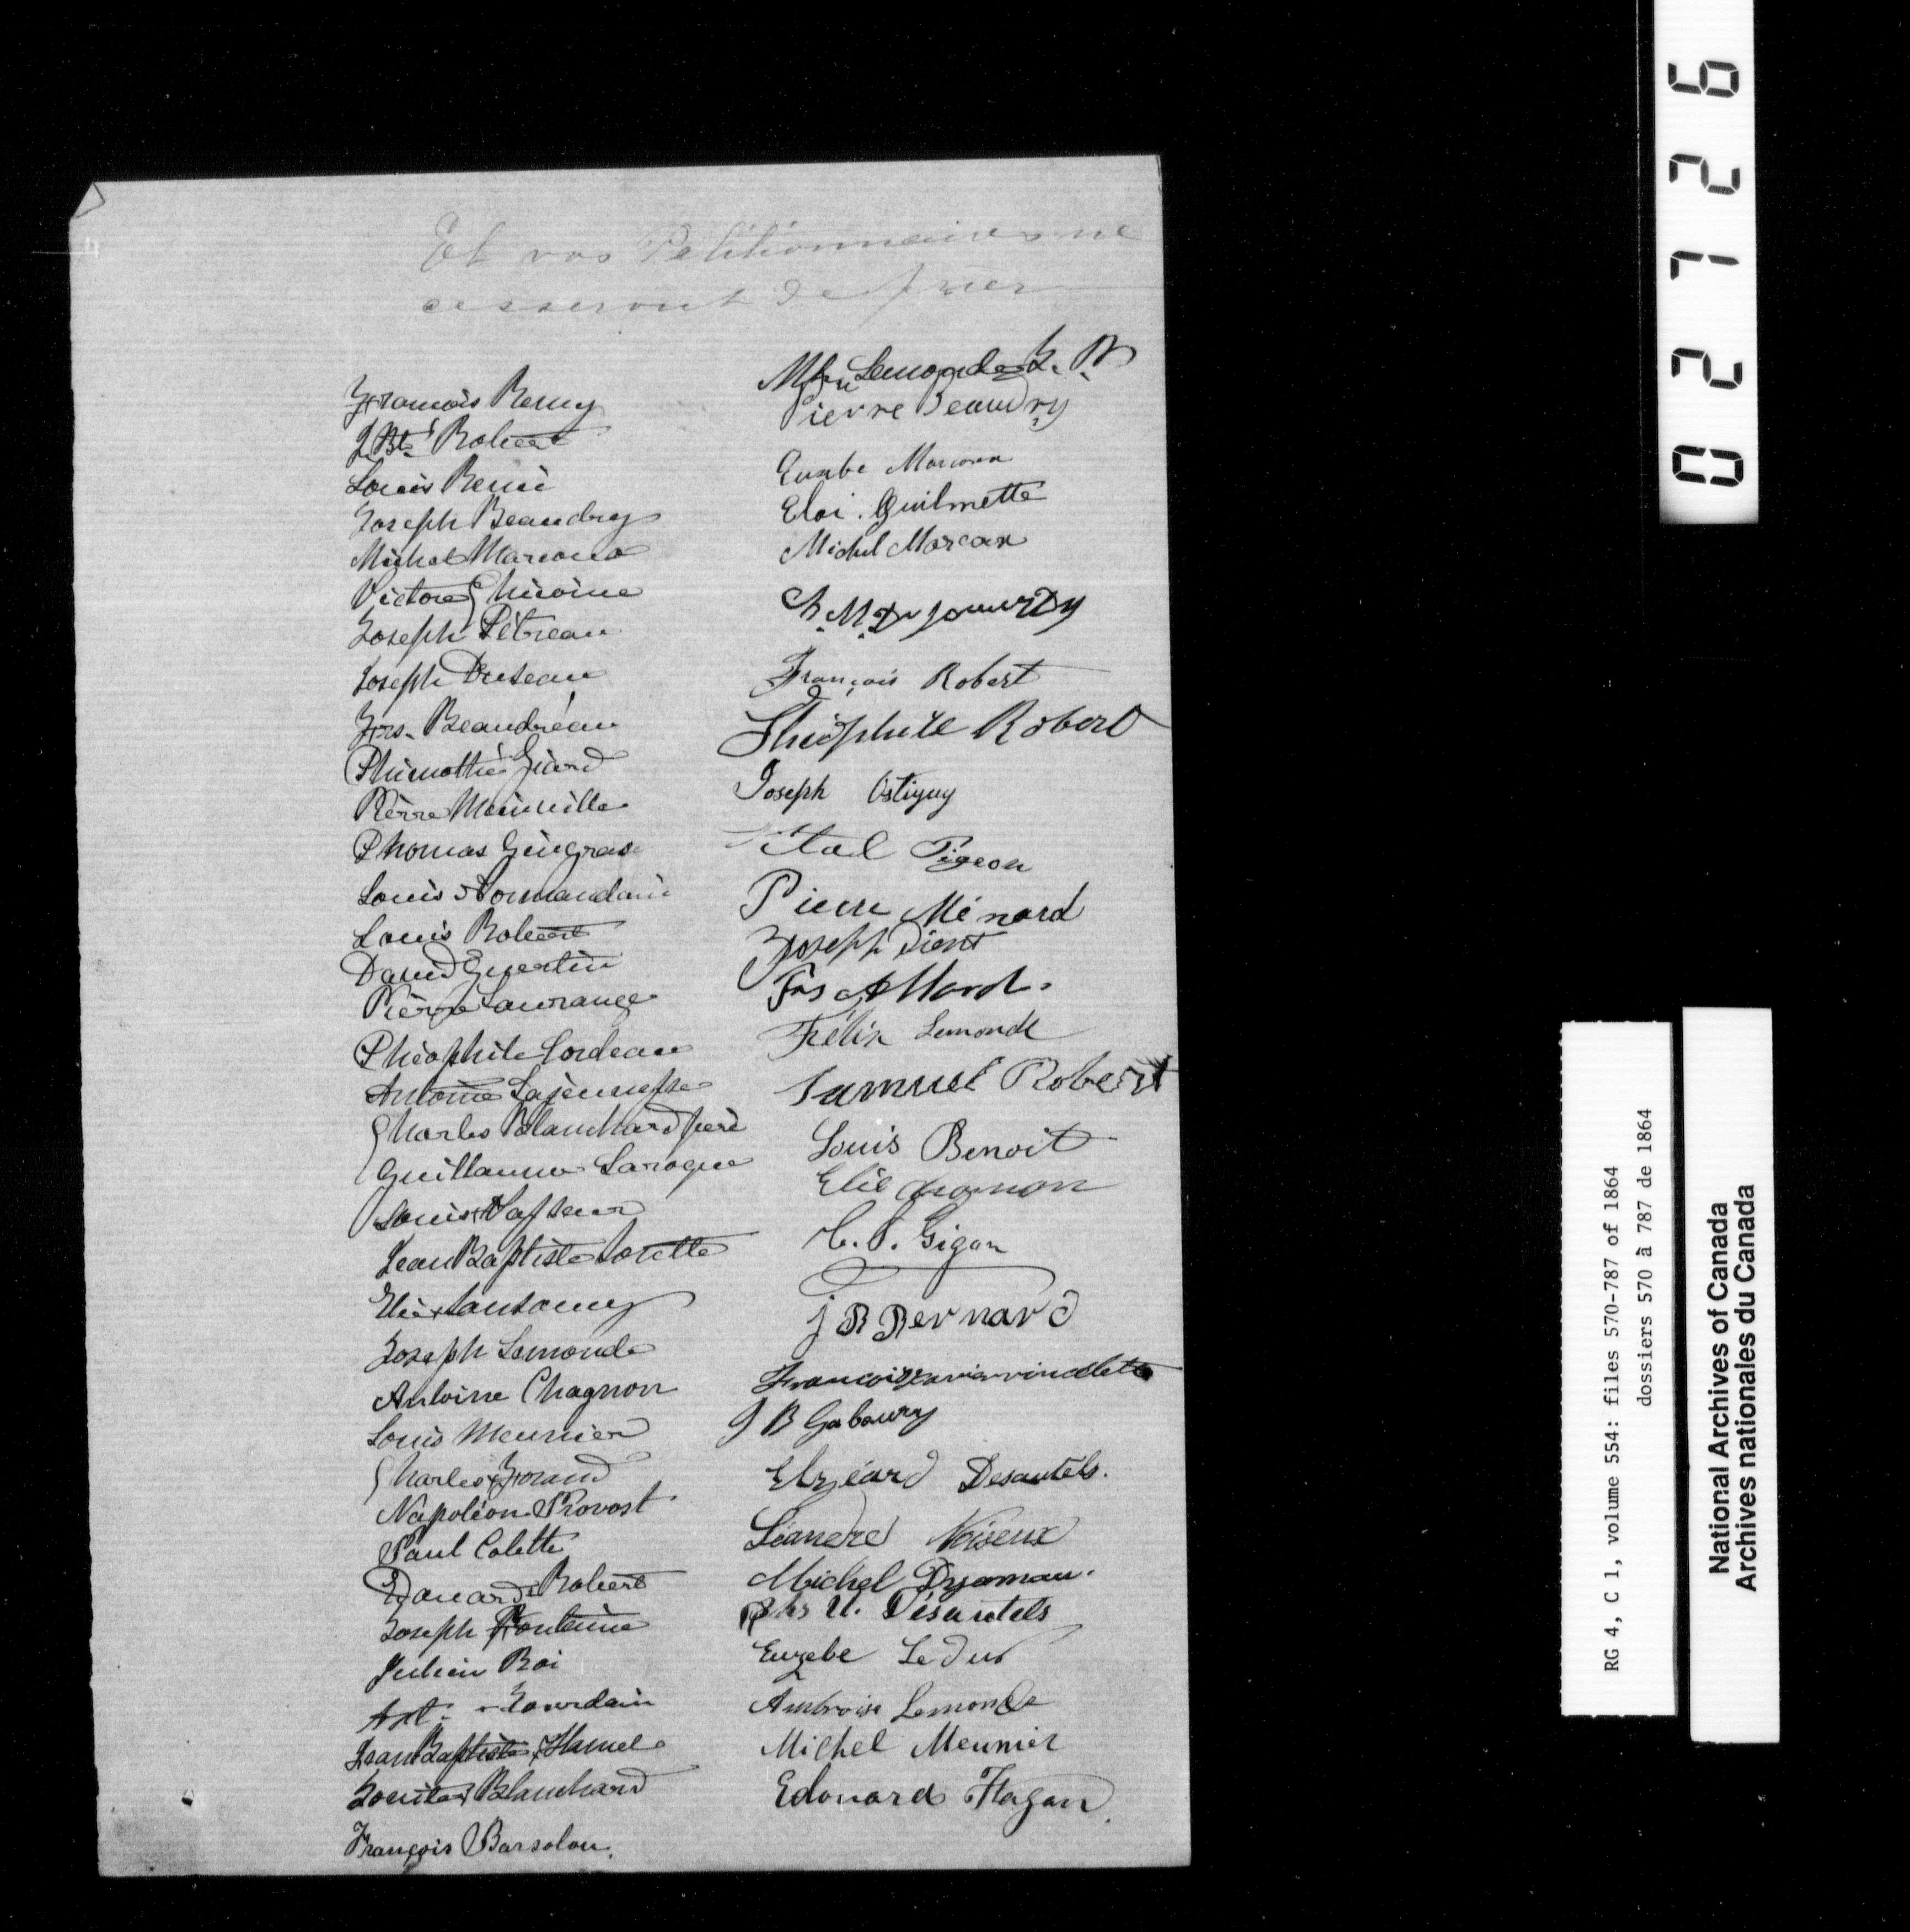 Et vos Petitionnaires ne
cesseront de prier
François Remy
J. Bte Robert
Louis Remi
Joseph Beaudry
Michel Marcoux
Victore Chicoine
Joseph Pétreau
Joseph Duteau
Frs. Beaudréau
Phimothé Giard
Pièrre Mainville
Phomas Gingras
Louis Normandain
Louis Robert
David Guertin
Pièrre Laurange
Phéophile Lordeau
Antoine Lajeunesse
Charles Blanchard père
Guillaume Laroque
Louis Lafleur
Jean Baptiste Lorette
Elie Santany
Joseph Lemonde
Antoine Chagnon
Louis Meunier
Charles Grand
Napoléon Provost
Paul Colette
Edouard Robert
Joseph Fontaine
Julien Roi
Ant. Jourdain
Jean Baptiste Hamel
Louis Blanchard
François Barsalou.
Lemonde
Pierre Beaudry
Euzbe Marcoux
Eloi. Guilmette
Michel Marcoux
François Robert
Théophile Robert
Joseph Ostiguy
Vital Pigeon
Pierre Ménard
Joseph Dient
Frs Allard.
Félix Lemonde
Samuel Robert
Louis Benoit
Elie Gagnon
C. P. Gigon
J B Bernard
Francois xavier vincelette
J B Gaboury
Elzéard Desautels.
Léandre Noiseux
Michel
U. Désautels
Euzebe Leduc
Ambroise Lemonde
Michel Meunier
Edouard Flagan
02726
RG 4, C 1, volume 554: files 570-787 of 1864
dossiers 570 à 787 de 1864
National Archives of Canada
Archives nationales du Canada